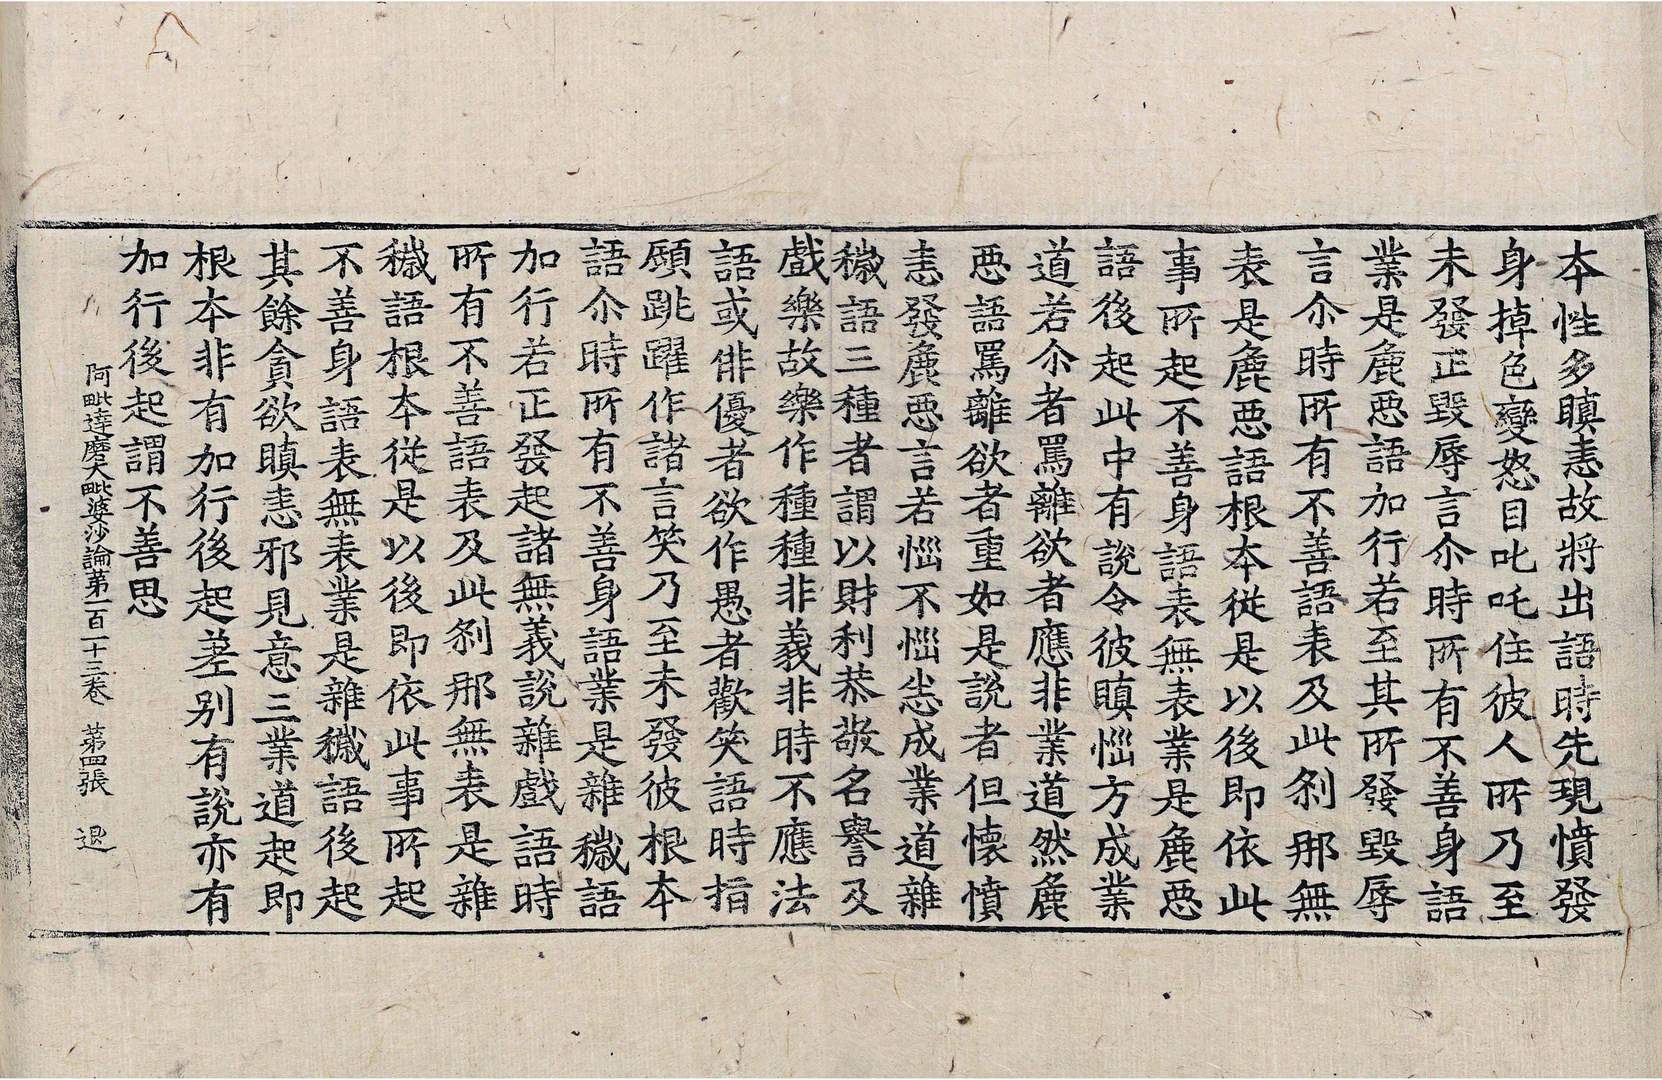 本性多瞋恚故將出語時先現憤發
身掉色變怒目叱吒住彼人所乃至
未發正毀辱言尒時所有不善身語
業是麁惡語加行若至其所發毀辱
言尒時所有不善語表及此剎那無
表是麁惡語根本從是以後即依此
事所起不善身語表無表業是麁惡
語後起此中有說令彼瞋惱方成業
道若尒者罵離欲者應非業道然麁
惡語罵離欲者重如是說者但懷憤
恚發麁惡言若惱不惱恚成業道雜
穢語三種者謂以財利恭敬名譽及
戲樂故樂作種種非義非時不應法
語或俳優者欲作愚者歡笑語時指
顧跳躍作諸言笑乃至未發彼根本
語尒時所有不善身語業是雜穢語
加行若正發起諸無義說雜戲語時
所有不善語表及此剎那無表是雜
穢語根本從是以後即依此事所起
不善身語表無表業是雜穢語後起
其餘貪欲瞋恚邪見意三業道起即
根本非有加行後起差别有說亦有
加行後起謂不善思
阿毗達磨大毗婆沙論第一百一十三卷 第四張 退